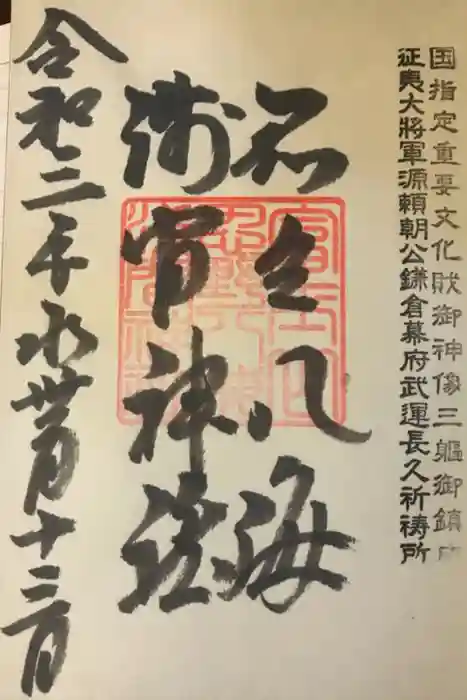 国指定重要文化財御神像三軀御鎮
征夷大将軍源頼朝公鎌倉幕府武運長久祈祷所
忍野八海
浅間神社
令和三年水無月十三日